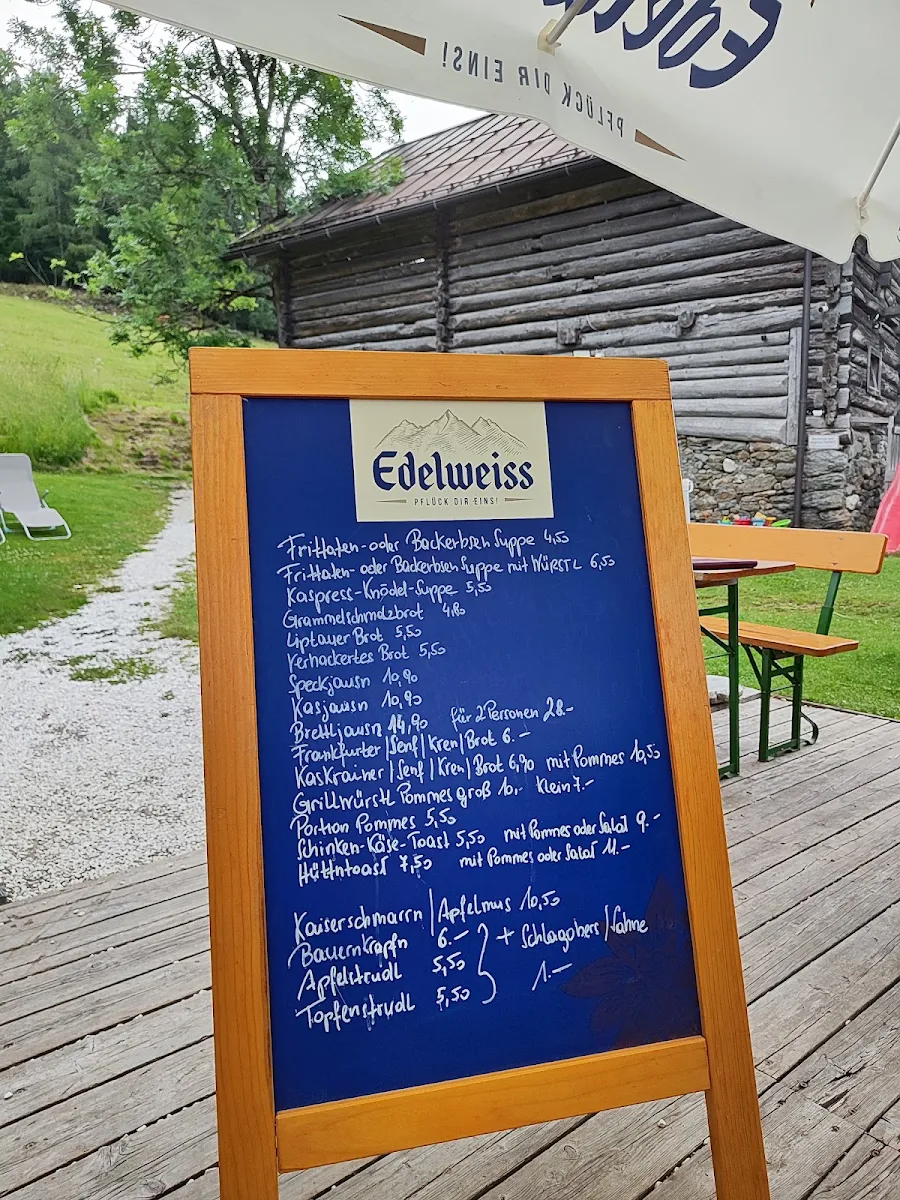 Edelweiss
PFLÜCK DIR EINS!
Edelweiss
PFLÜCK DIR EINS!
Frittaten- oder Backerbsen Suppe 4,50
Frittaten- oder Backerbsen Suppe mit WÜRSTL 6,50
Kaspress-Knödel-Suppe 5,50
Grammelschmalzbrot 4,80
Liptauer Brot 5,50
Verhackertes Brot 5,50
Speckjausn 10,90
Kasjausn 10,90
Brettljausn 14,90 für 2 Personen 28.-
Frankfurter|Senf|Kren|Brot 6.-
Kaskrainer|Senf|Kren|Brot 6,90 mit Pommes 10,50
Grillwürstl Pommes groß 10,- Klein 7.-
Portion Pommes 5,50
Schinken-Käse-Toast 5,50 mit Pommes oder Salat 9.-
Hüttntoast 7,50 mit Pommes oder Salat 11.-
Kaiserschmarrn|Apfelmus 10,50
Bauernkrapfn 6.- } + Schlagobers/Sahne
Apfelstrudl 5,50 1.-
Topfenstrudl 5,50